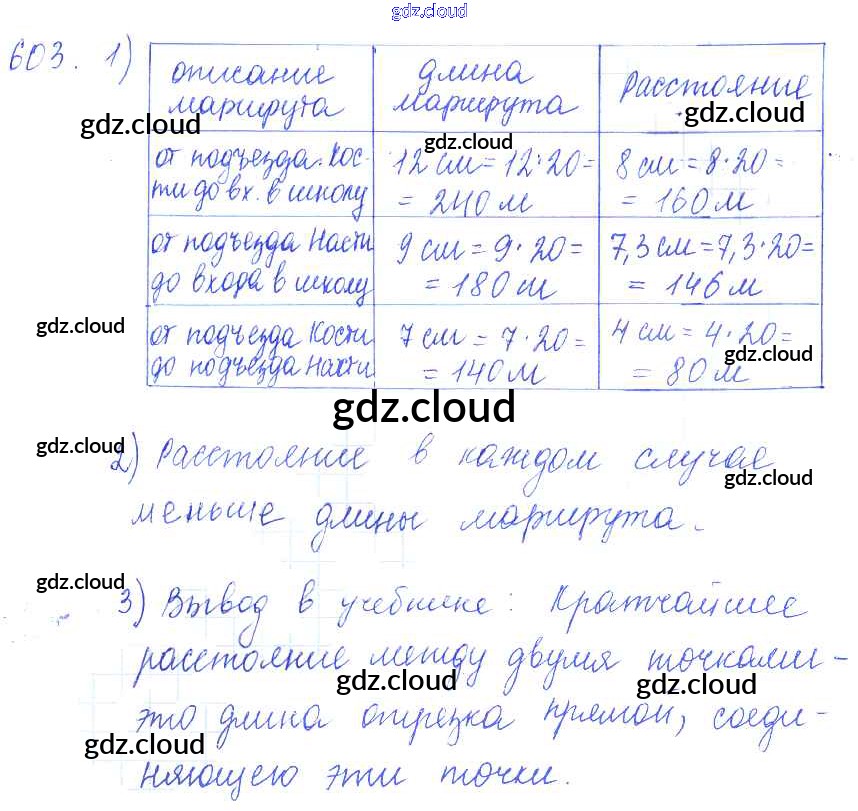 gdz.cloud
603. 1)
описание маршрута
длина маршрута
Расстояние
gdz.cloud
gdz.cloud
gdz.cloud
от подъезда Кос-
ти до вх. в школу
12 см = 12·20=
= 240 м
8 см = 8·20=
= 160 м
от подъезда Насти
до входа в школу
9 см = 9·20=
= 180 м
7,3 см = 7,3·20=
= 146 м
gdz.cloud
от подъезда Кости
до подъезда Насти
7 см = 7·20=
= 140 м
4 см = 4·20=
= 80 м
gdz.cloud
gdz.cloud
gdz.cloud
2) Расстояние в каждом случае
gdz.cloud
меньше длины маршрута.
gdz.cloud
3) Вывод в учебнике: Кратчайшее
расстояние между двумя точками –
gdz.cloud
gdz.cloud
это длина отрезка прямой, соеди-
gdz.cloud
няющею эти точки.